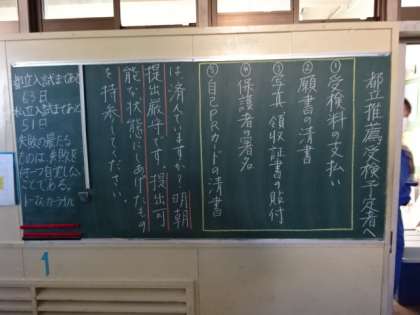 都立推薦受検予定者へ
①受検料の支払い
②願書の清書
③写真、領収証書の貼付
④保護者の署名
⑤自己PRカードの清書
は済んでいますか?明朝
提出厳守です。提出可
能な状態にしあげたもの
を持参してください。
都立入試まであと
63日
私立入試まであと
51日
失敗の最たる
ものは、失敗を
何一つ自覚しない
ことである。
トーマス・カーライル
1